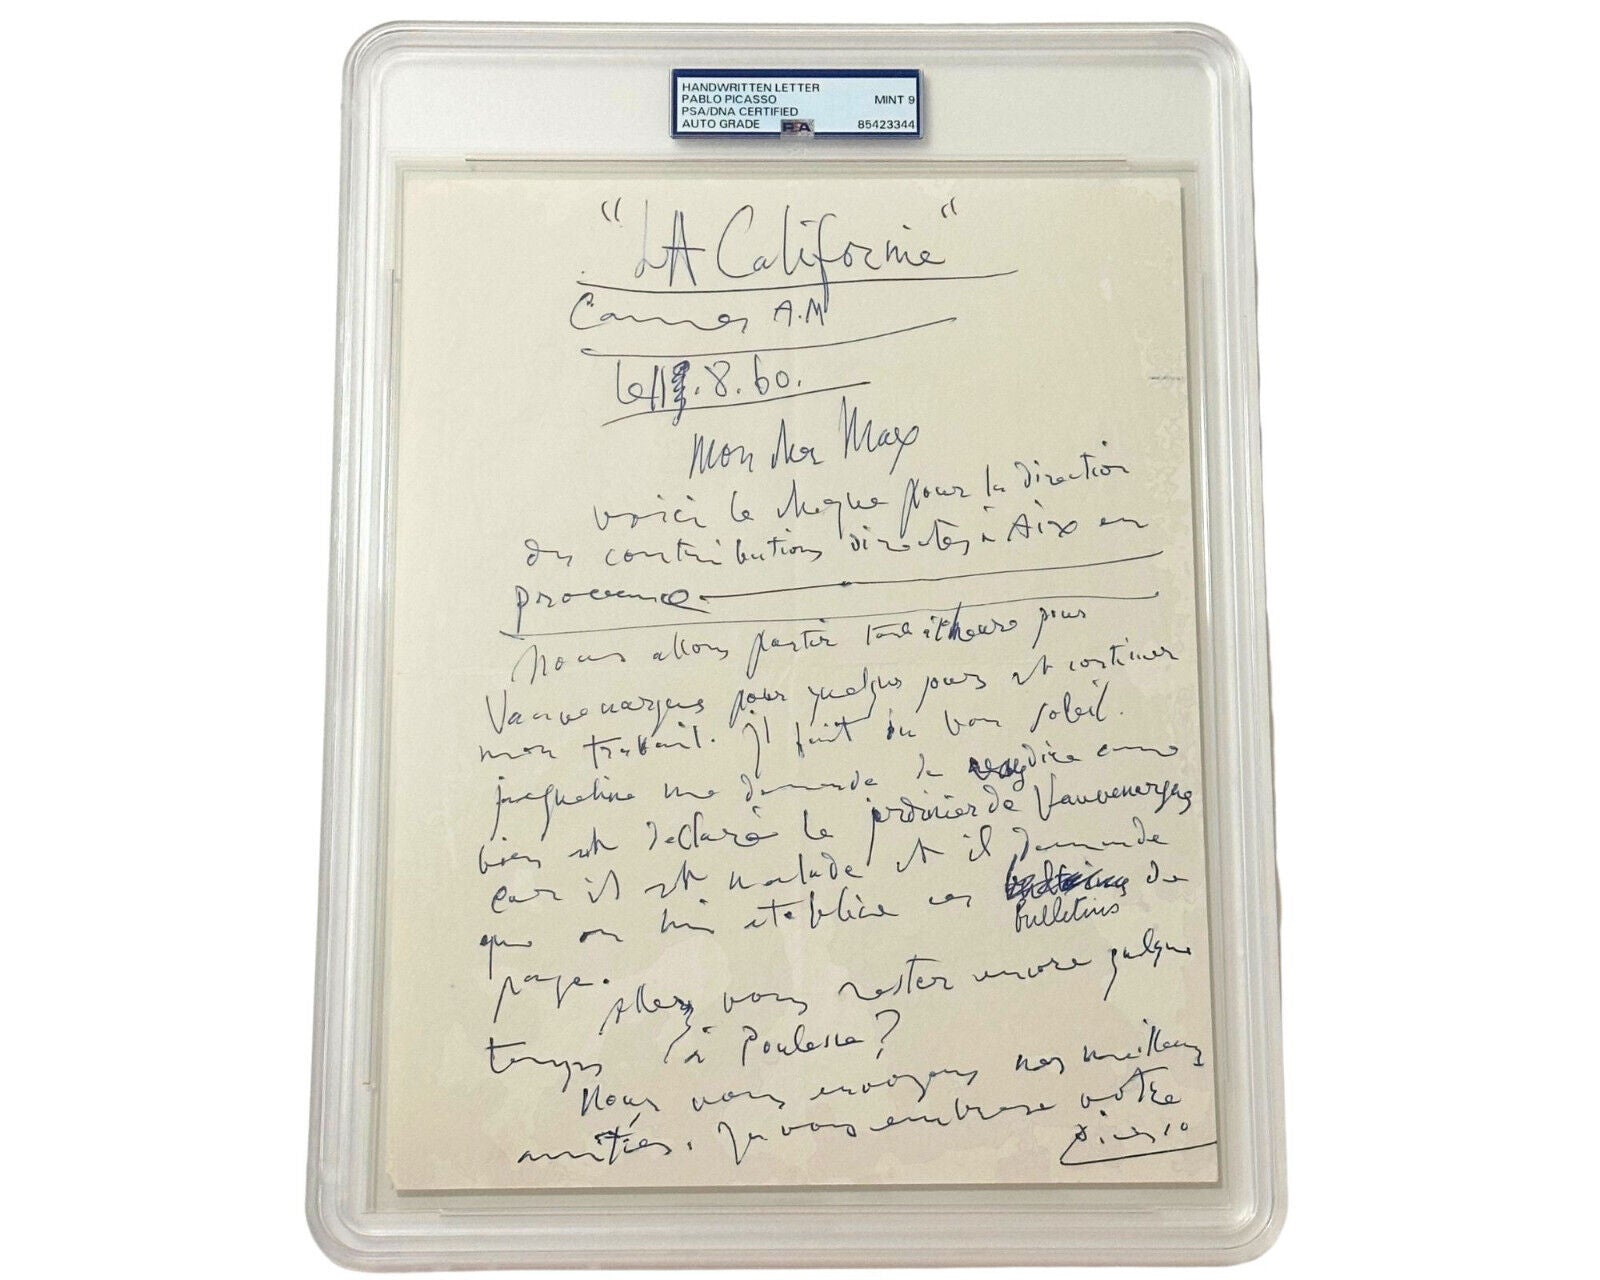 HANDWRITTEN LETTER
PABLO PICASSO
PSA/DNA CERTIFIED
AUTO GRADE
MINT 9
85423344
PSA
"LA Californie"
Cannes A.M
le 11.8.60.
Mon cher Max
voici le cheque pour la direction
des contributions directes à Aix en
provence.
Nous allons partir tout à l'heure pour
Vauvenargues pour quelques jours et continuer
mon travail. Il fait du bon soleil.
jacqueline me demande de dire comme
bien est declaré le jardinier de Vauvenargues
car il est malade et il demande
que on lui etablice ces bulletins de
paye.
Allez vous rester encore quelque
temps à
Nous vous envoyons nos meilleures
amitiés. Je vous embrasse votre
Picasso